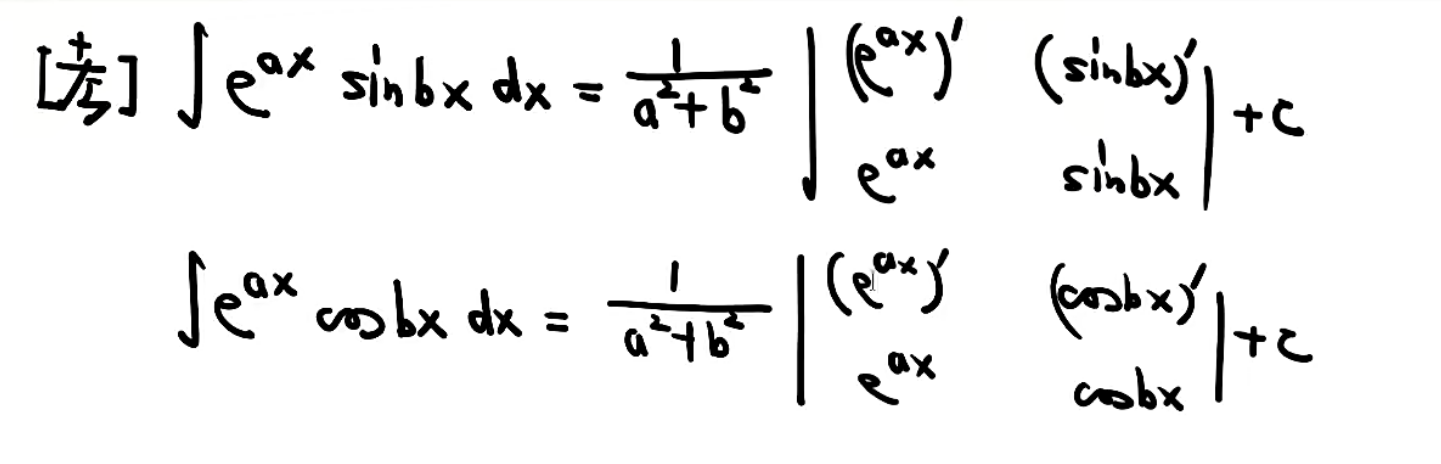 [注] ∫e^{ax} sinbx dx = \frac{1}{a^2+b^2} \begin{vmatrix} (e^{ax})' & (sinbx)' \\ e^{ax} & sinbx \end{vmatrix} +C
∫e^{ax} cosbx dx = \frac{1}{a^2+b^2} \begin{vmatrix} (e^{ax})' & (cosbx)' \\ e^{ax} & cosbx \end{vmatrix} +C